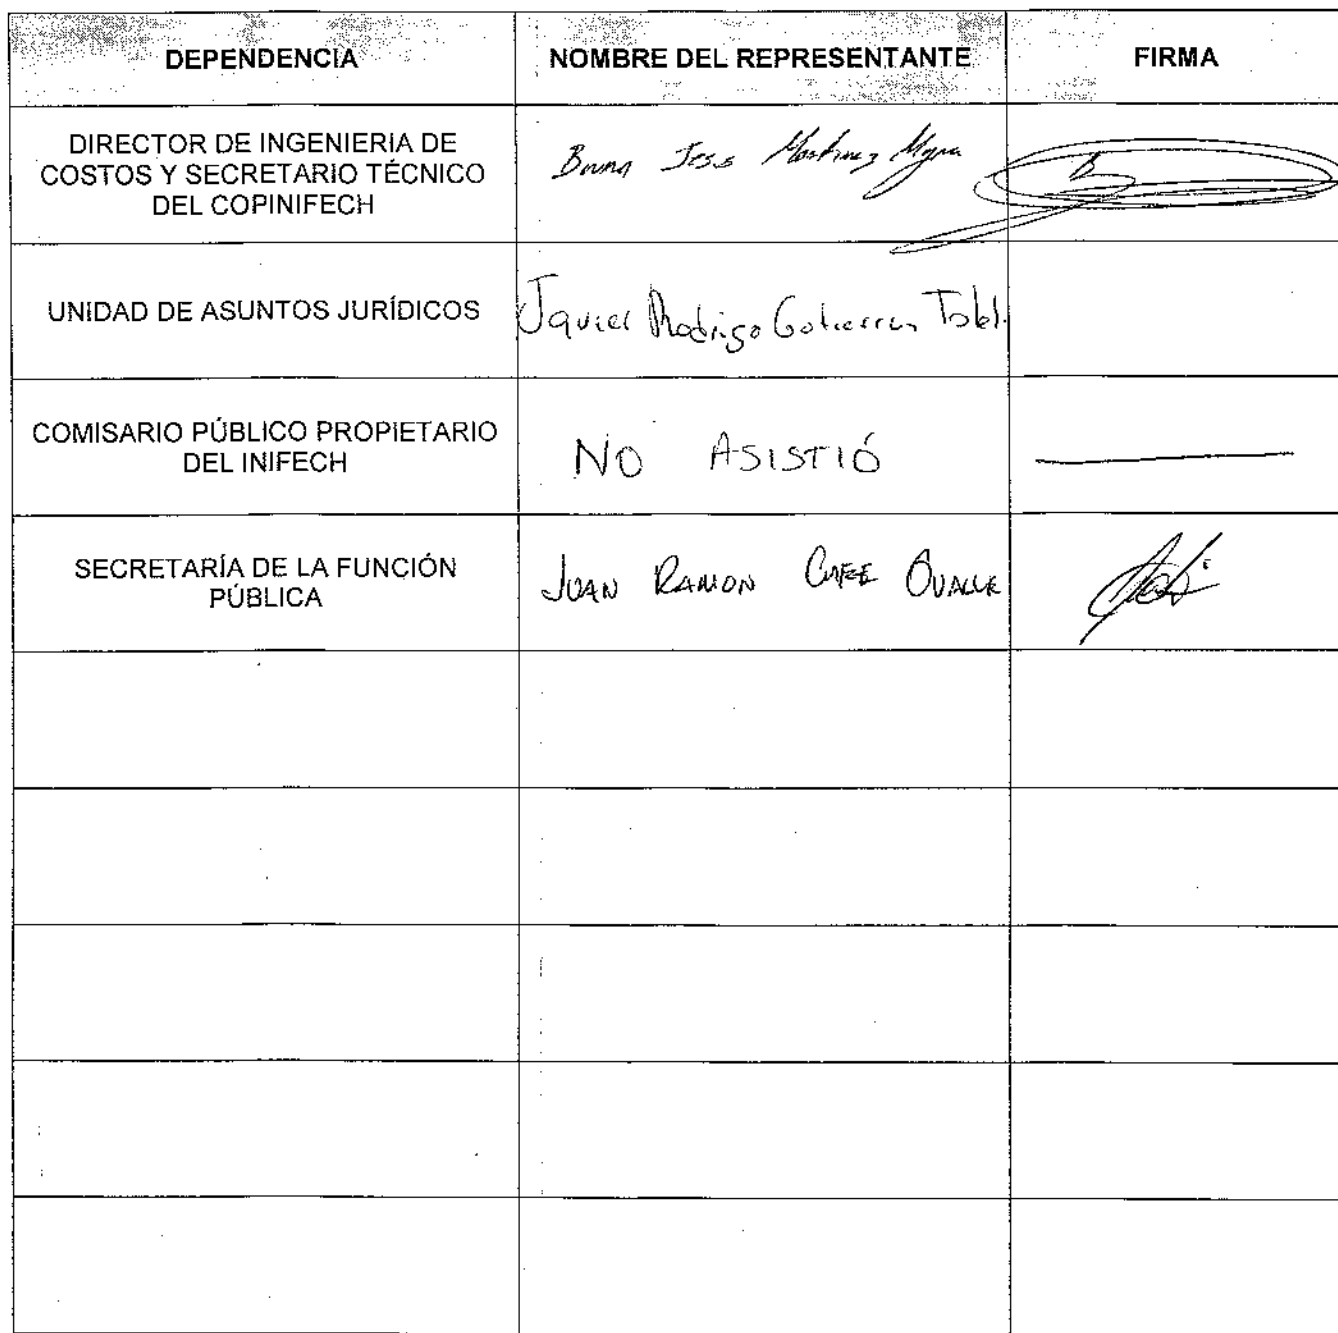 DEPENDENCIA NOMBRE DEL REPRESENTANTE FIRMA
DIRECTOR DE INGENIERIA DE
COSTOS Y SECRETARIO TÉCNICO
DEL COPINIFECH
Martinez
UNIDAD DE ASUNTOS JURÍDICOS
Javier Rodrigo
COMISARIO PÚBLICO PROPIETARIO
DEL INIFECH
NO ASISTIÓ
SECRETARÍA DE LA FUNCIÓN
PÚBLICA
JUAN RAMON OVALLE